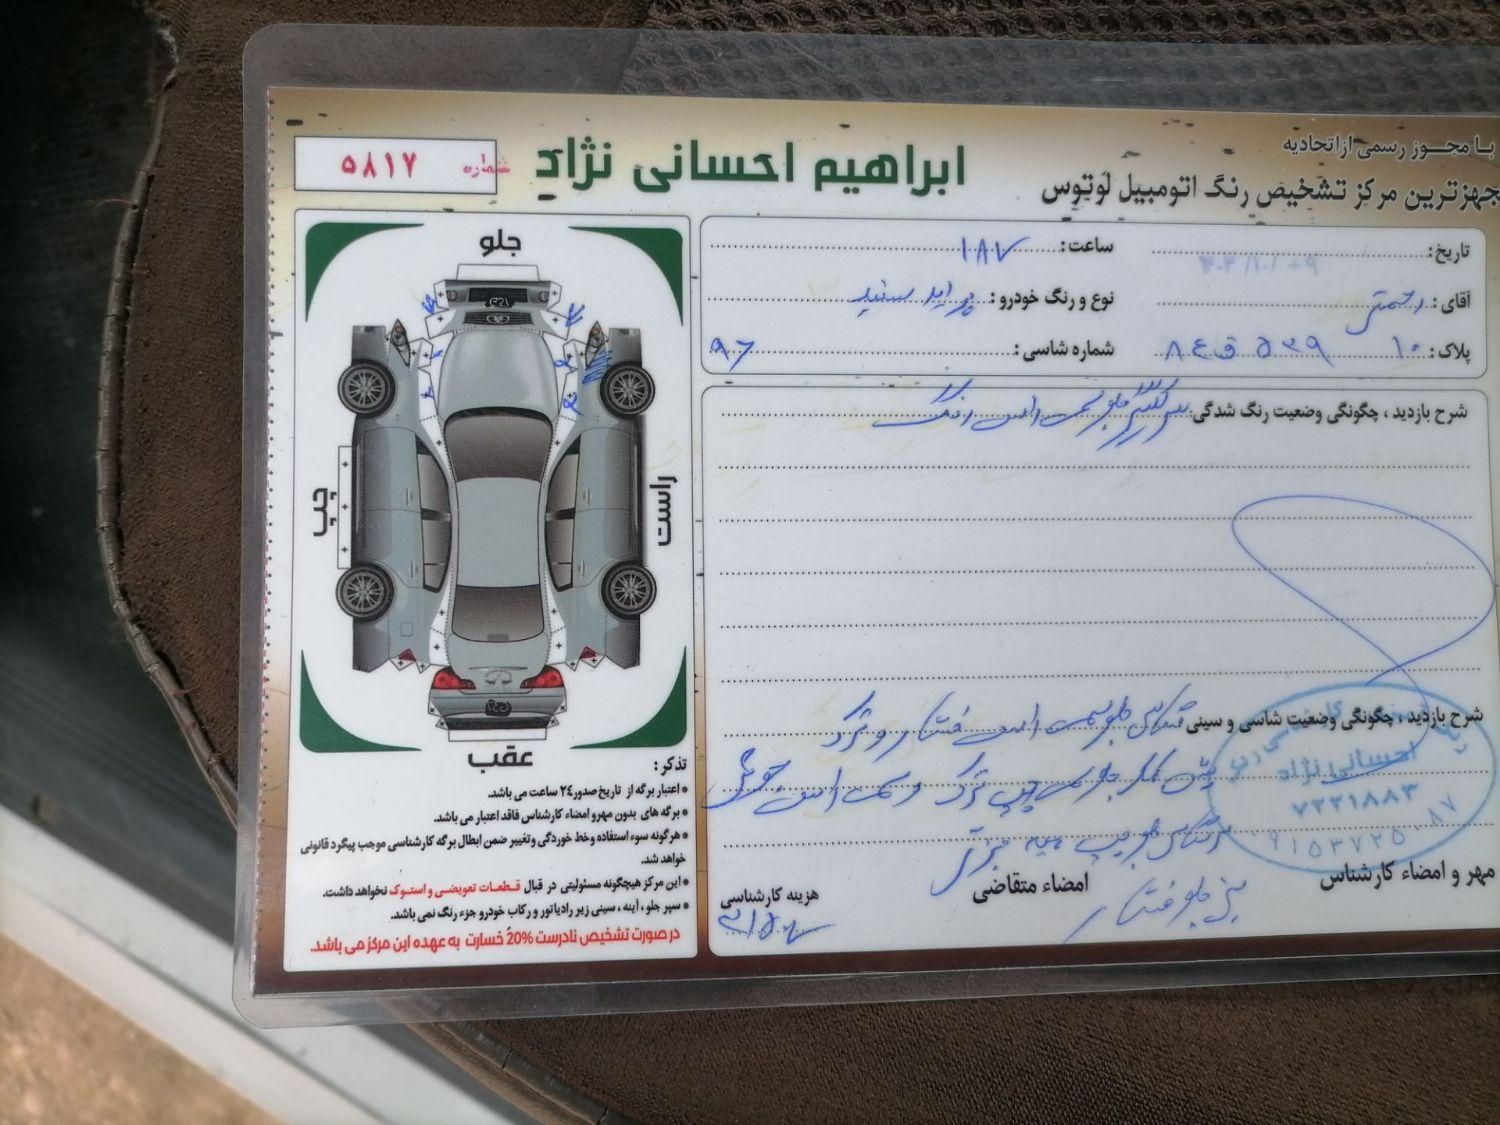 با مجوز رسمی از اتحادیه
جهزترین مرکز تشخیص رنگ اتومبیل لوتوس
ابراهیم احسانی نژاد
شماره ۵۸۱۷
تاریخ:
ساعت: ۱۸۷
آقای: رحمتی
نوع و رنگ خودرو: پراید سفید
پلاک: ۱۰ ۵۳۹ ق ۸۴
شماره شاسی: ۹۶
شرح بازدید ، چگونگی وضعیت رنگ شدگی: گلگیر جلو سمت راست رنگ
شرح بازدید ، چگونگی وضعیت شاسی و سینی: شاسی جلو سمت راست فشار و ترک
جلو سمت چپ ترک و سمت راست جوش
سر شاسی جلو چپ
سینی جلو فشار
احسانی نژاد
۷۲۲۱۸۸۳
مهر و امضاء کارشناس
امضاء متقاضی
هزینه کارشناسی
جلو
چپ
راست
عقب
تذکر:
● اعتبار برگه از تاریخ صدور ۲۴ ساعت می باشد.
● برگه های بدون مهر و امضاء کارشناس فاقد اعتبار می باشد.
● هرگونه سوء استفاده و خط خوردگی و تغییر ضمن ابطال برگه کارشناسی موجب پیگرد قانونی
خواهد شد.
● این مرکز هیچگونه مسئولیتی در قبال قطعات تعویضی و استوک نخواهد داشت.
● سپر جلو ، آینه ، سینی زیر رادیاتور و رکاب خودرو جزء رنگ نمی باشد.
در صورت تشخیص نادرست 20% خسارت به عهده این مرکز می باشد.